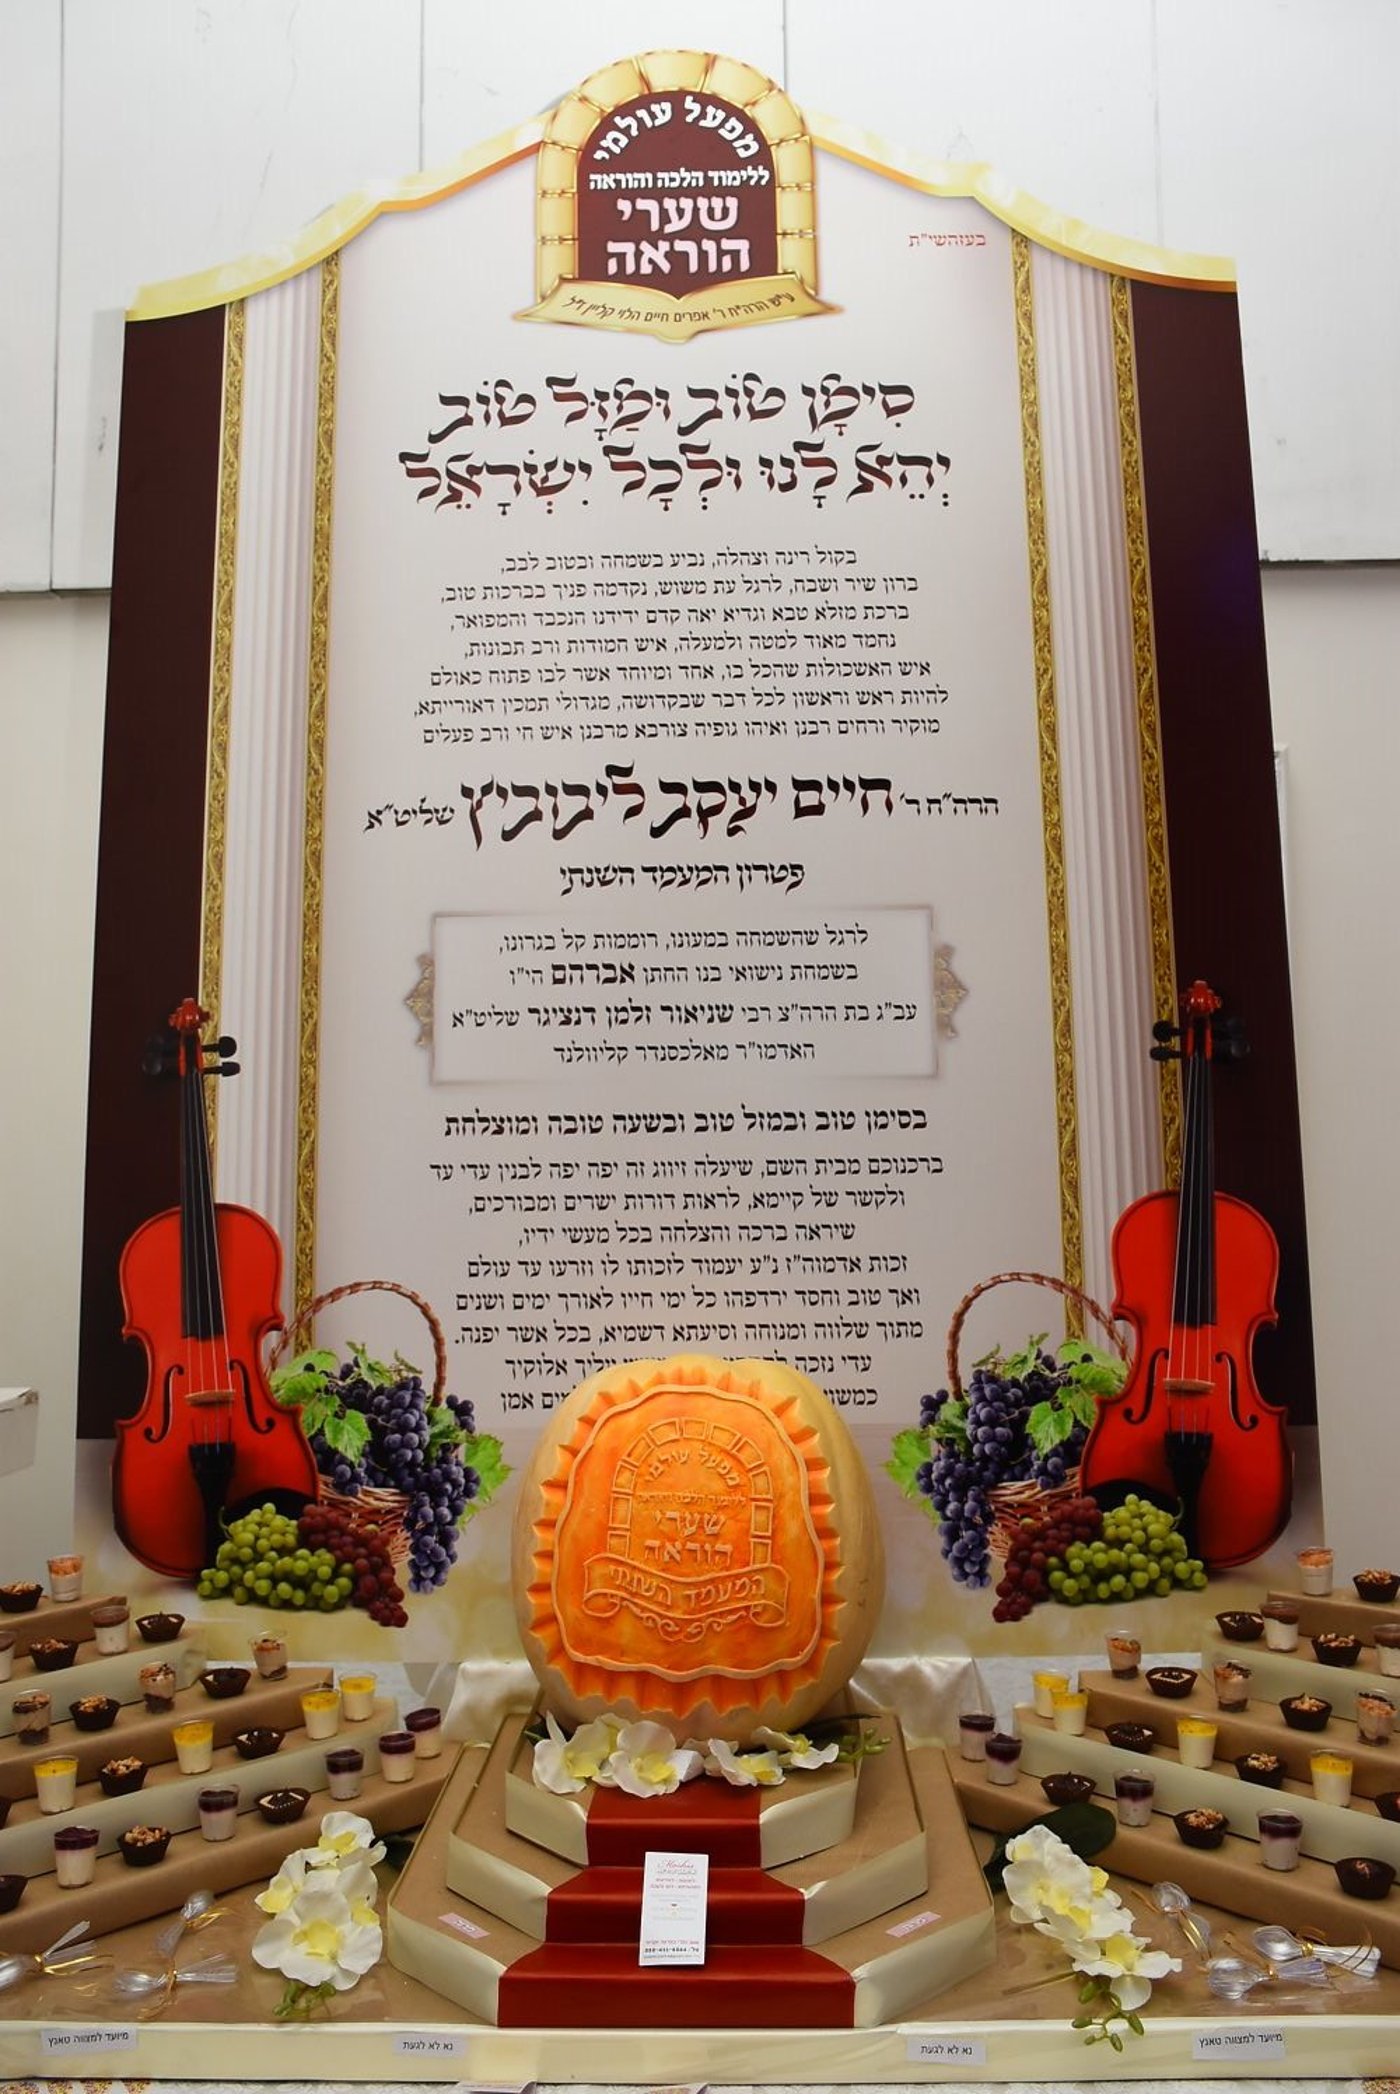 מפעל עולמי
ללימוד הלכה והוראה
שערי
הוראה
ע"ש הרה"ח ר' אפרים חיים הלוי קליין ז"ל
בעזהשי"ת
סִימָן טוֹב וּמַזָּל טוֹב
יְהֵא לָנוּ וּלְכָל יִשְׂרָאֵל
בקול רינה וצהלה, נביע בשמחה ובטוב לבב,
ברון שיר ושבח, לרגל עת משוש, נקדמה פניך בברכות טוב,
ברכת מזלא טבא וגדיא יאה קדם ידידנו הנכבד והמפואר,
נחמד מאוד למטה ולמעלה, איש חמודות ורב תבונות,
איש האשכולות שהכל בו, אחד ומיוחד אשר לבו פתוח כאולם
להיות ראש וראשון לכל דבר שבקדושה, מגדולי תמכין דאורייתא,
מוקיר ורחים רבנן ואיהו גופיה צורבא מרבנן איש חי ורב פעלים
הרה"ח ר' חיים יעקב ליבוביץ שליט"א
פטרון המעמד השנתי
לרגל שהשמחה במעונו, רוממות קל בגרונו,
בשמחת נישואי בנו החתן אברהם הי"ו
עב"ג בת הרה"צ רבי שניאור זלמן דנציגר שליט"א
האדמו"ר מאלכסנדר קליוולנד
בסימן טוב ובמזל טוב ובשעה טובה ומוצלחת
ברכנוכם מבית השם, שיעלה זיווג זה יפה יפה לבנין עדי עד
ולקשר של קיימא, לראות דורות ישרים ומבורכים,
שיראה ברכה והצלחה בכל מעשי ידיו,
זכות אדמוה"ז נ"ע יעמוד לזכותו לו וזרעו עד עולם
ואך טוב וחסד ירדפהו כל ימי חייו לאורך ימים ושנים
מתוך שלווה ומנוחה וסיעתא דשמיא, בכל אשר יפנה.
עדי נזכה יוליך אלוקיך
אמן
מפעל עולמי
ללימוד הלכה והוראה
שערי
הוראה
המעמד השנתי
מיועד למצווה טאנץ
נא לא לגעת
נא לא לגעת
מיועד למצווה טאנץ